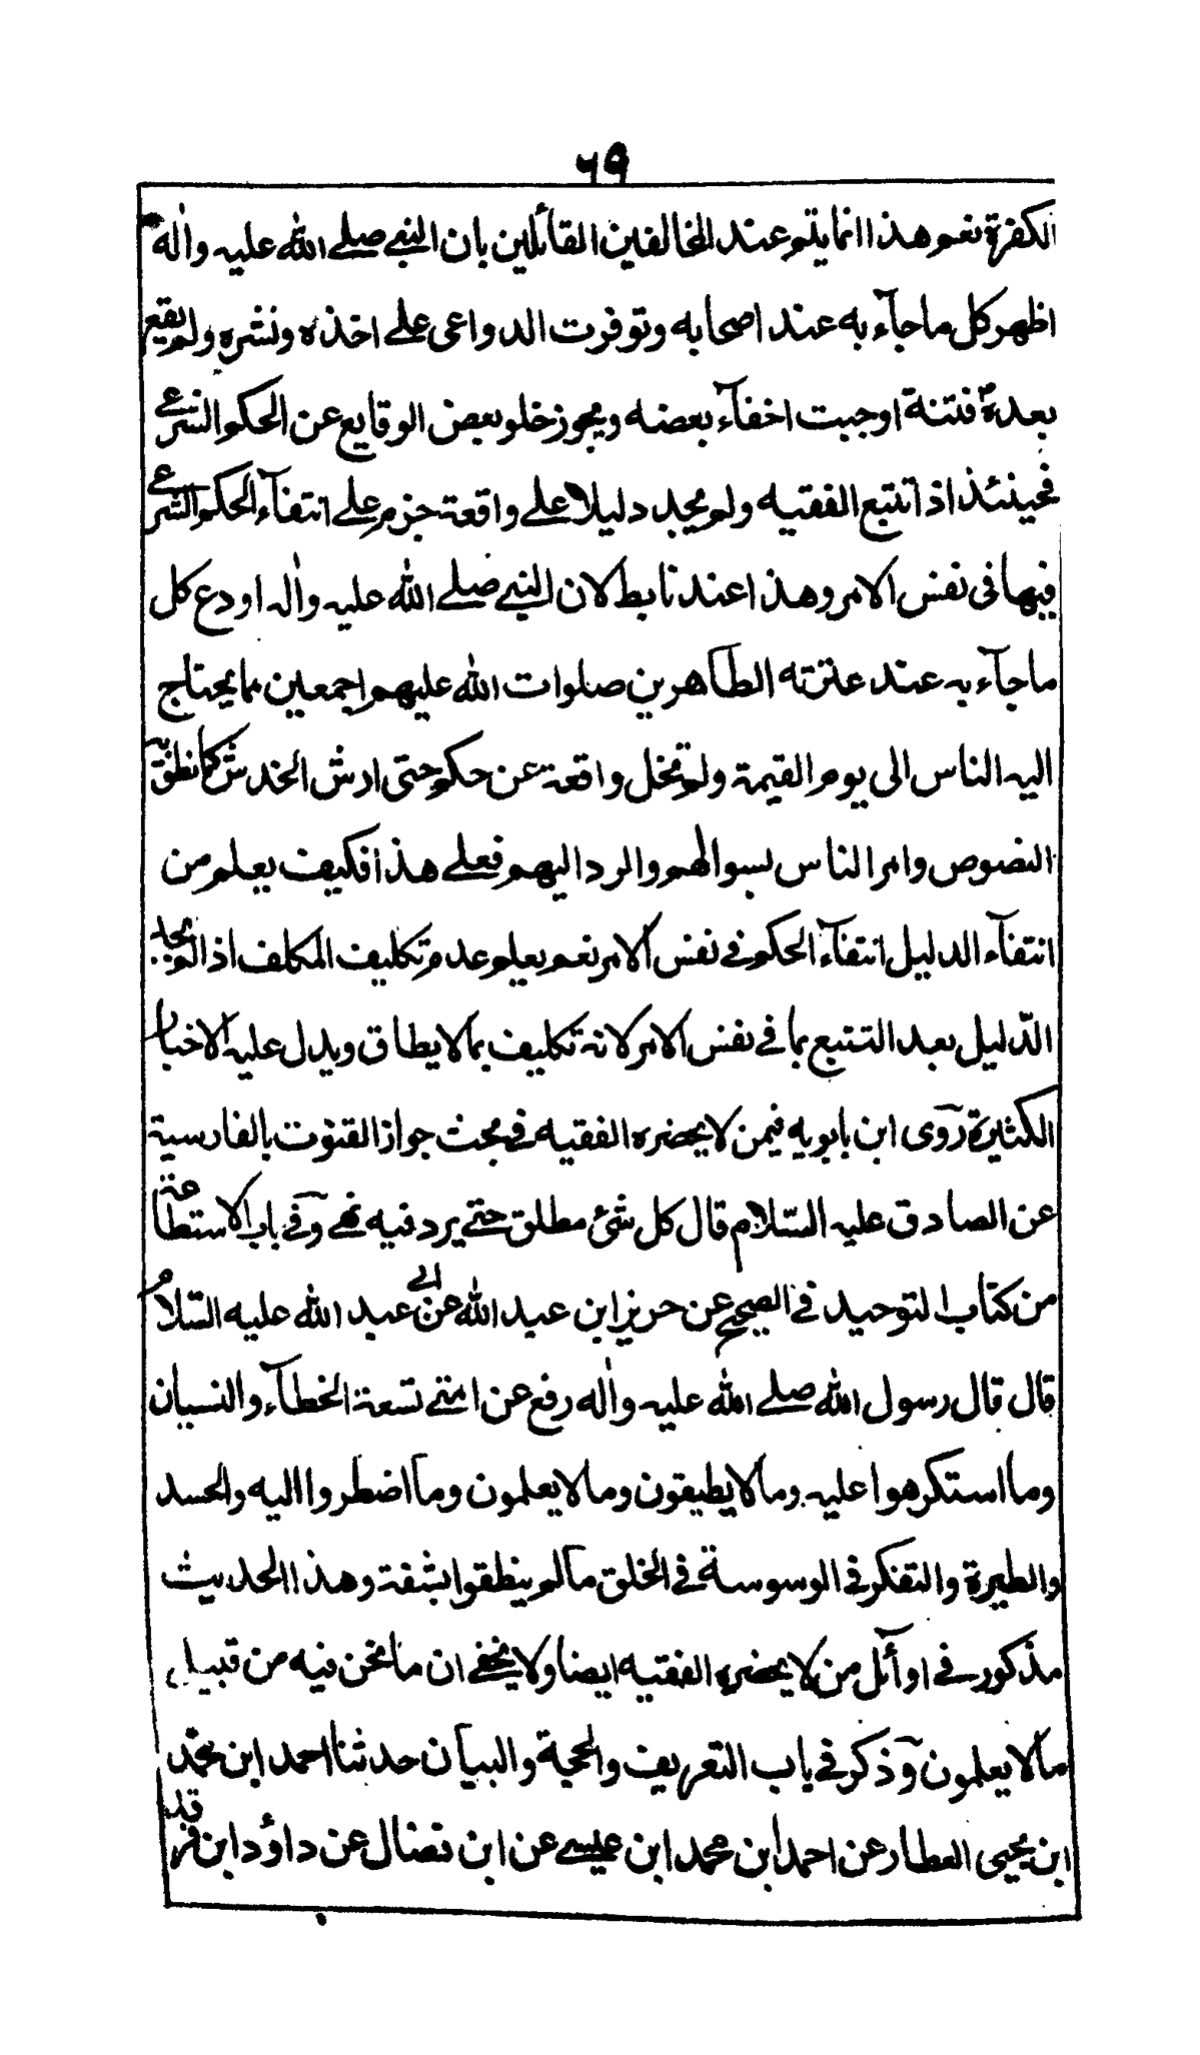 ٦٩
الكفرة نعم هذا انما يتم عند المخالفين القائلين بان النبي صلے الله عليه واله
اظهر كل ما جآء به عند اصحابه وتوفرت الدواعى علے اخذه ونشره ولم يقع
بعده فتنة اوجبت اخفآء بعضه ويجوز خلو بعض الوقايع عن الحكم الشرعے
فحينئذ اذا تتبع الفقيه ولم يجد دليلا علے واقعة جزم علے انتفآء الحكم الشرعے
فيها فى نفس الامر وهذا عندنا بط لان النبے صلے الله عليه واله اودع كل
ما جآء به عند عترته الطاهرين صلوات الله عليهم اجمعين مما يحتاج
اليه الناس الى يوم القيمة ولم تخل واقعة عن حكم حتى ارش الخدش كما نطق به
النصوص وامر الناس بسوالهم والرد اليهم فعلے هذا فكيف يعلم من
انتفآء الدليل انتفآء الحكم فے نفس الامر نعم يعلم عدم تكليف المكلف اذا لم يجد
الدّليل بعد التتبع بما فے نفس الامر لانه تكليف بما لا يطاق ويدل عليه الاخبار
الكثيرة روى ابن بابويه فيمن لا يحضره الفقيه فے مبحث جواز القنوت بالفارسية
عن الصادق عليه السّلام قال كل شئ مطلق حتے يرد فيه نهے وفے باب الاستطاعة
من كتاب التوحيد فے الصحيح عن حريز ابن عبد الله عن ابے عبد الله عليه السّلام
قال قال رسول الله صلے الله عليه واله رفع عن امتے تسعة الخطآء والنسيان
وما استكرهوا عليه وما لا يطيقون وما لا يعلمون وما اضطروا اليه والحسد
والطيرة والتفكر فے الوسوسة فے الخلق ما لم ينطقوا بشفة وهذا الحديث
مذكور فے اوآئل من لا يحضره الفقيه ايضا ولا يخفے ان ما نحن فيه من قبيل
ما لا يعلمون وذكر فے باب التعريف والحجة والبيان حدثنا احمد ابن محمّد
ابن يحيى العطار عن احمد ابن محمد ابن عيسے عن ابن فضال عن داؤد ابن فرقد